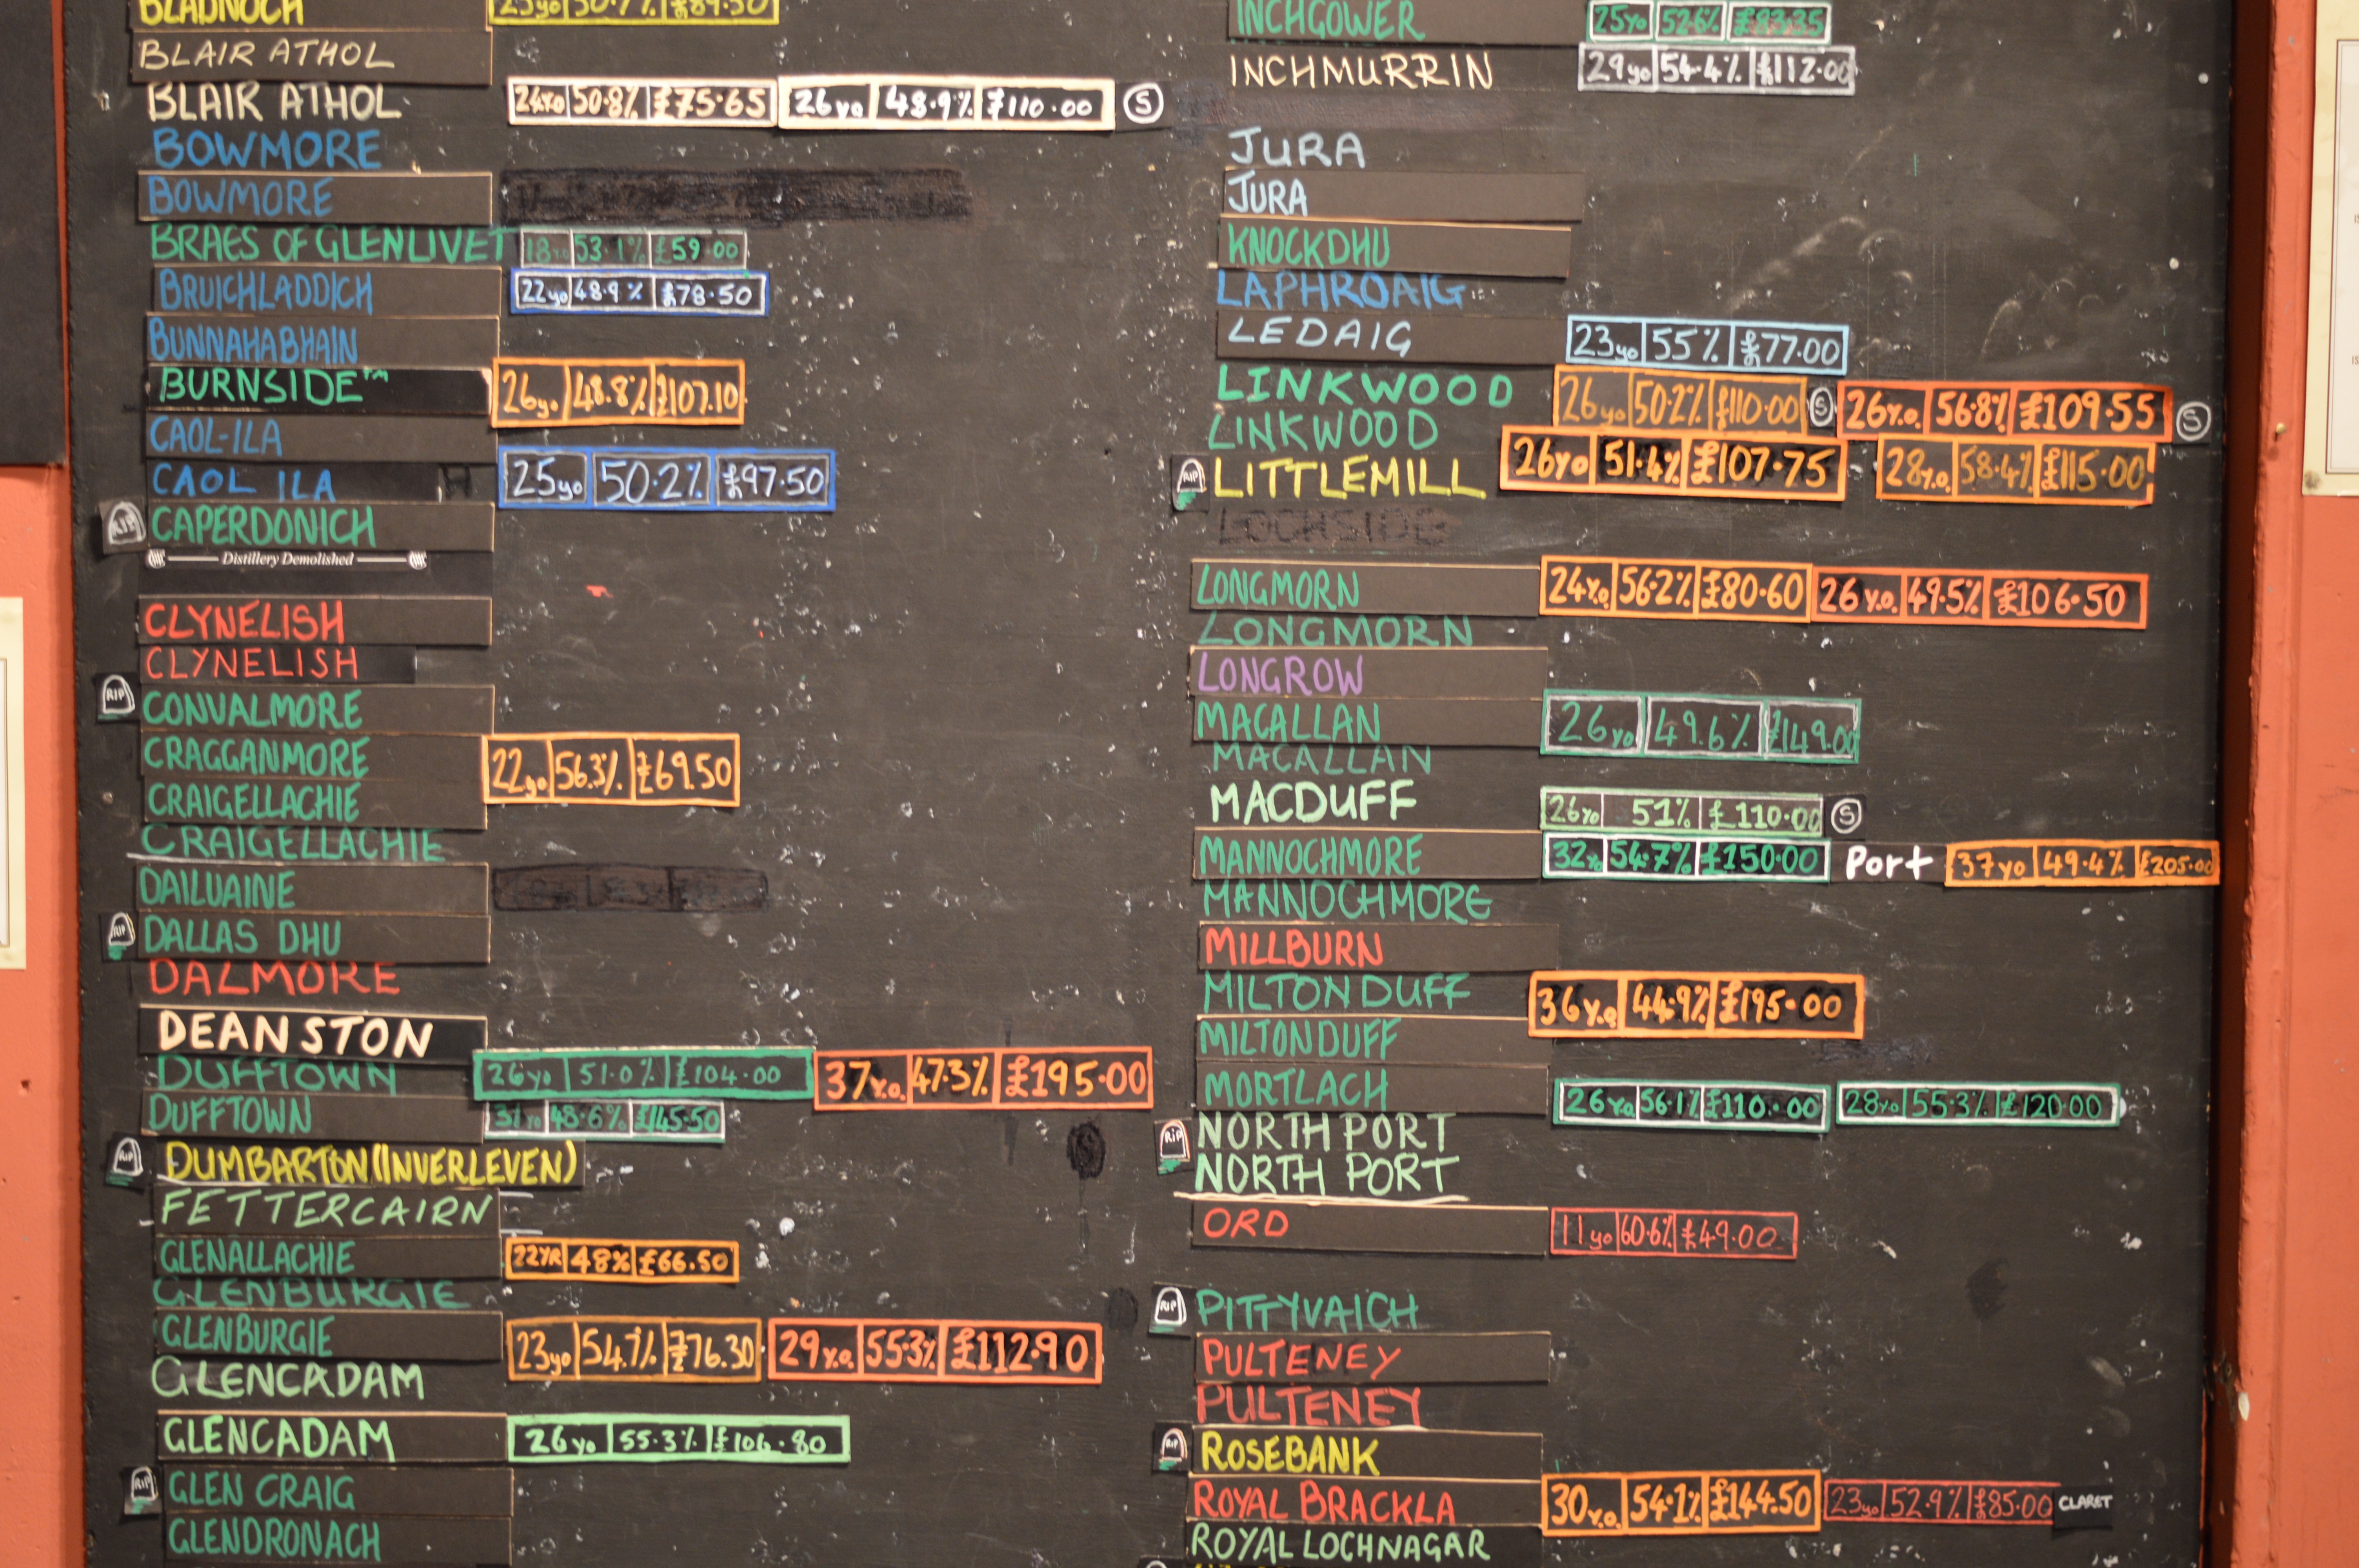 BLADNOCH 23yo 50.7% £89.50
BLAIR ATHOL
BLAIR ATHOL 24Y.O 50.8% £75.65 26yo 48.9% £110.00 S
BOWMORE
BOWMORE
BRAES OF GLENLIVET 18yo 53.1% £59.00
BRUICHLADDICH 22yo 48.9% £78.50
BUNNAHABHAIN
BURNSIDE™ 26yo 48.8% £107.10
CAOL-ILA
CAOL ILA 25yo 50.2% £97.50
RIP CAPERDONICH
Distillery Demolished
CLYNELISH
CLYNELISH
RIP CONVALMORE
CRAGGANMORE 22yo 56.3% £69.50
CRAIGELLACHIE
CRAIGELLACHIE
DAILUAINE
RIP DALLAS DHU
DALMORE
DEANSTON
DUFFTOWN 26yo 51.0% £104.00 37Y.O. 47.3% £195.00
DUFFTOWN 31yo 48.6% £145.50
RIP DUMBARTON (INVERLEVEN)
FETTERCAIRN
GLENALLACHIE 22YR 48% £66.50
GLENBURGIE
GLENBURGIE 23yo 54.1% £76.30 29Y.O. 55.3% £112.90
GLENCADAM
GLENCADAM 26yo 55.3% £106.80
RIP GLEN CRAIG
GLENDRONACH
INCHGOWER 25yo 52.6% £83.35
INCHMURRIN 29yo 54.4% £112.00
JURA
JURA
KNOCKDHU
LAPHROAIG
LEDAIG 23yo 55% £77.00
LINKWOOD 26yo 50.2% £110.00 S 26Y.O. 56.8% £109.55 S
LINKWOOD
RIP LITTLEMILL 26yo 51.4% £107.75 28Y.O. 58.4% £115.00
LOCHSIDE
LONGMORN 24Y.O 56.2% £80.60 26Y.O. 49.5% £106.50
LONGMORN
LONGROW
MACALLAN 26yo 49.6% £149.00
MACALLAN
MACDUFF 26yo 51% £110.00 S
MANNOCHMORE 32yo 54.7% £150.00 Port 37yo 49.4% £205.00
MANNOCHMORE
MILLBURN
MILTONDUFF 36Y.O 44.9% £195.00
MILTONDUFF
MORTLACH 26Y.O 56.1% £110.00 28Y.O 55.3% £120.00
RIP NORTH PORT
NORTH PORT
ORD 11yo 60.6% £49.00
RIP PITTYVAICH
PULTENEY
PULTENEY
RIP ROSEBANK
ROYAL BRACKLA 30Y.O. 54.1% £144.50 23yo 52.9% £85.00 CLARET
ROYAL LOCHNAGAR